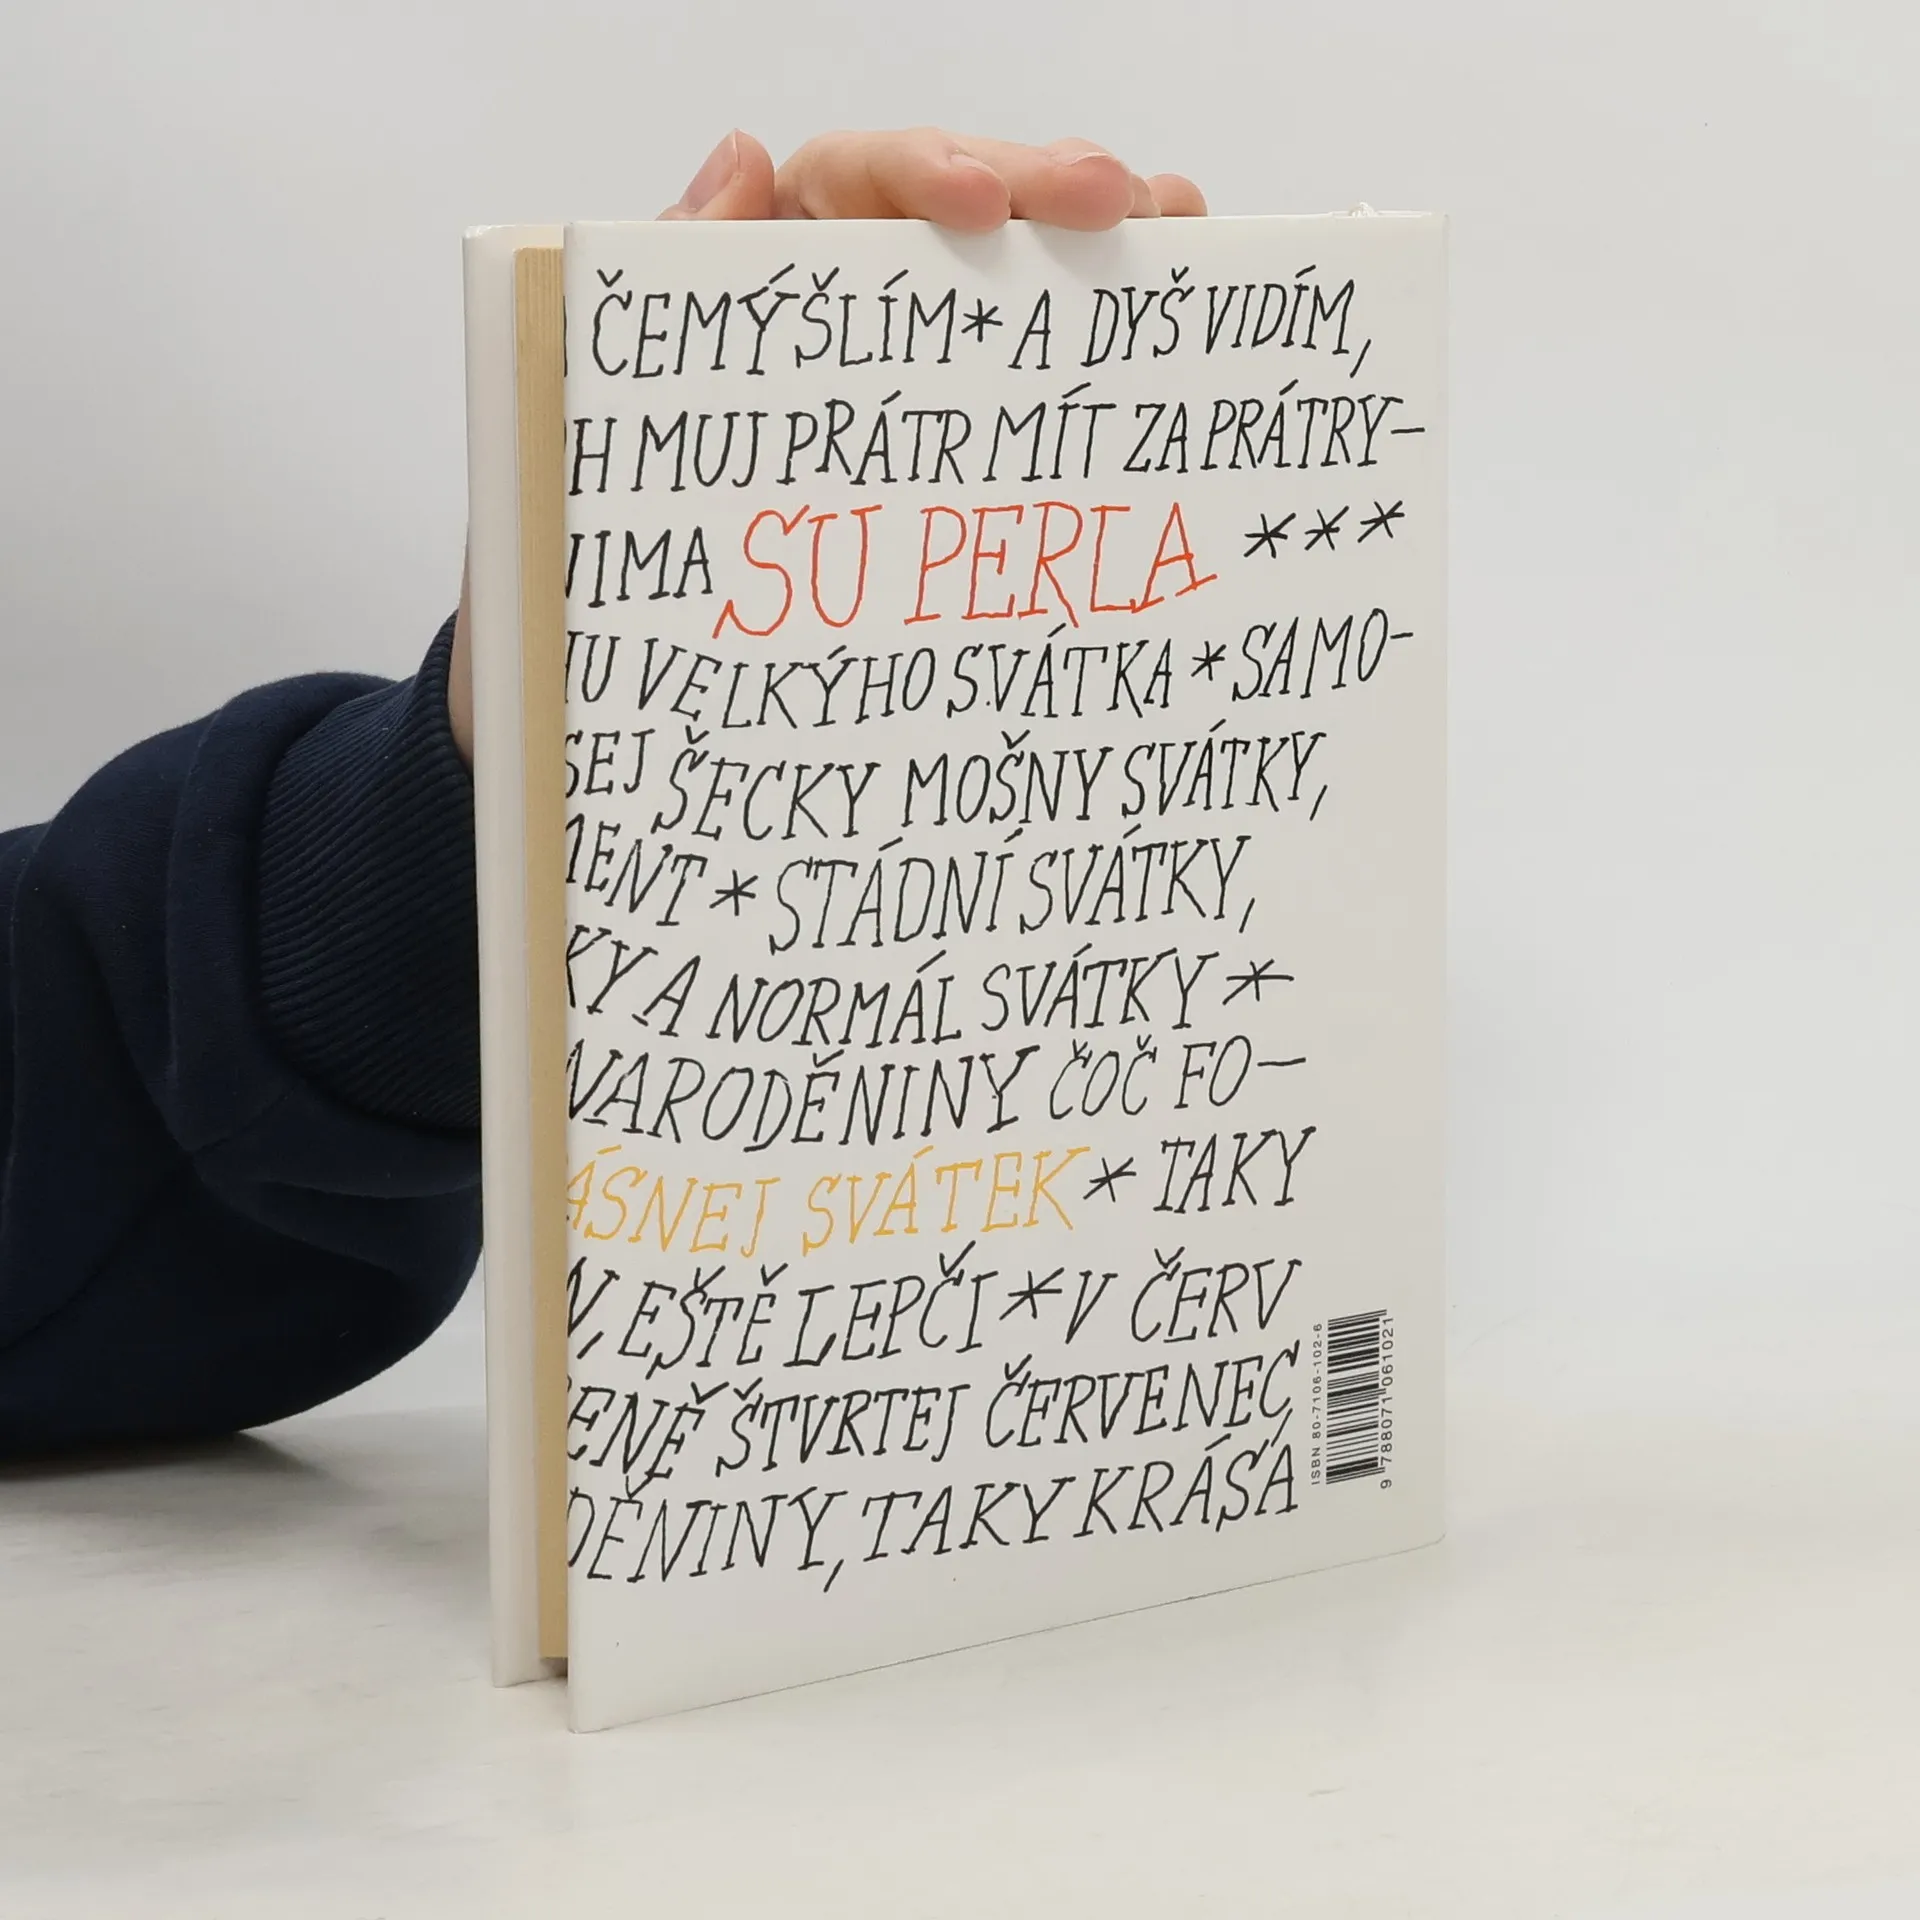 ČEMÝŠLÍM * A DYŠ VIDÍM,
H MUJ PRÁTR MÍT ZA PRÁTRY–
IMA SU PERLA ***
U VELKÝHO SVÁTKA * SAMO-
SEJ ŠECKY MOŠNY SVÁTKY,
MENT * STÁDNÍ SVÁTKY,
KY A NORMÁL SVÁTKY *
NARODĚNINY ČOČ FO–
ÁSNEJ SVÁTEK * TAKY
N, EŠTĚ LEPČI * V ČERV
ENĚ ŠTVRTEJ ČERVENEC,
DĚNINY, TAKY KRÁSA
ISBN 80-7106-102-6
9 788071 061021